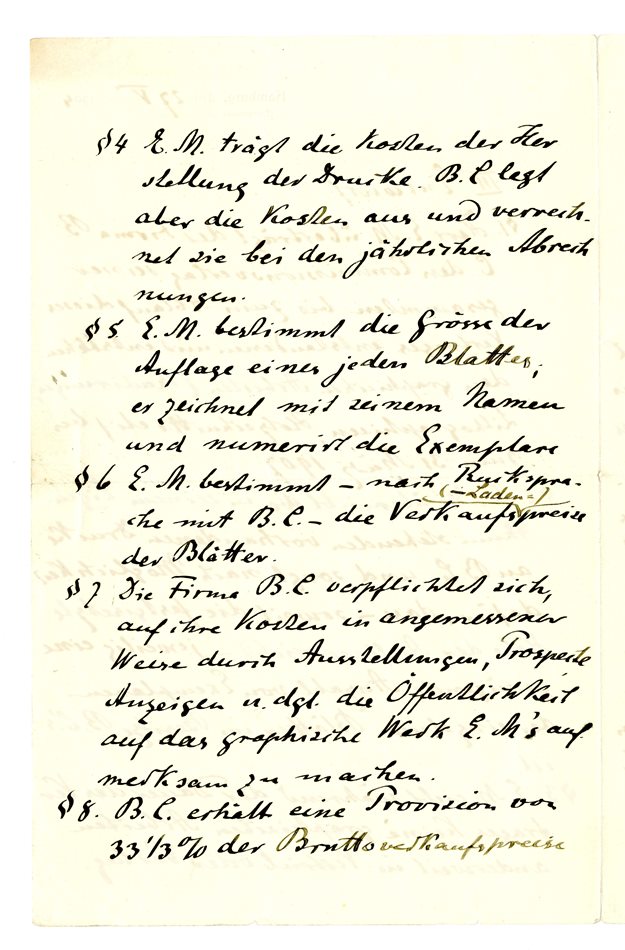 § 4 E. M. trägt die Kosten der Her
stellung der Drucke. B. C legt
aber die Kosten aus und verrech-
net sie bei den jährlichen Abrech
nungen.
§ 5 E. M. bestimmt die Grösse der
Auflage eines jeden Blattes,
er zeichnet mit seinem Namen
und numerirt die Exemplare
§ 6 E. M. bestimmt – nach Rückspra-
(– Laden=)
che mit B. C. – die Verkaufspreise
der Blätter.
§ 7 Die Firma B. C. verpflichtet sich,
auf ihre Kosten in angemessener
Weise durch Ausstellungen, Prospecte
Anzeigen u. dgl. die Öffentlichkeit
auf das graphische Werk E. M's auf
merksam zu machen.
§ 8. B. C. erhält eine Provision von
33 1/3 % der Bruttoverkaufspreise